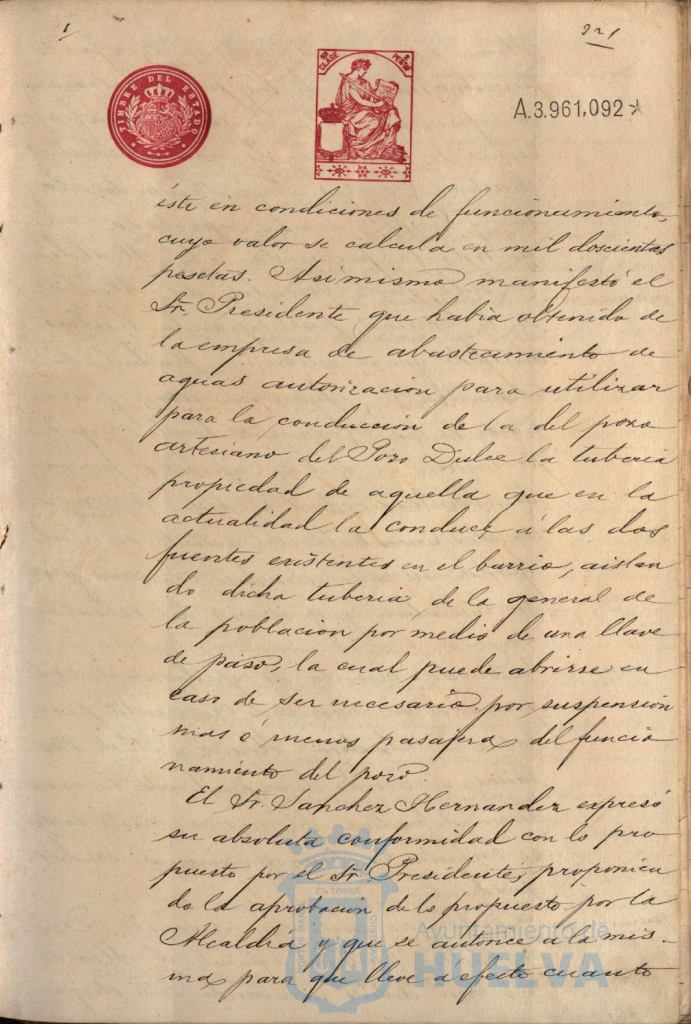 1
321
TIMBRE DEL ESTADO
CLASE
PESETA
A.3.961,092
éste en condiciones de funcionamiento,
cuyo valor se calcula en mil doscientas
pesetas. Asimismo manifestó el
Sr. Presidente que habia obtenido de
la empresa de abastecimiento de
aguas autorizacion para utilizar
para la conducción de la del pozo
artesiano del Pozo Dulce la tuberia
propiedad de aquella que en la
actualidad la conduce á las dos
fuentes existentes en el barrio, aislan
do dicha tuberia de la general de
la poblacion por medio de una llave
de paso, la cual puede abrirse en
caso de ser necesario por suspensión
mas ó menos pasajera del funcio
namiento del pozo.
El Sr. Sanchez Hernandez expresó
su absoluta conformidad con lo pro
puesto por el Sr. Presidente, proponien
do la aprobacion de lo propuesto por la
Alcaldia y que se autorice a la mis-
ma para que lleve a efecto cuanto
Ayuntamiento de
HUELVA